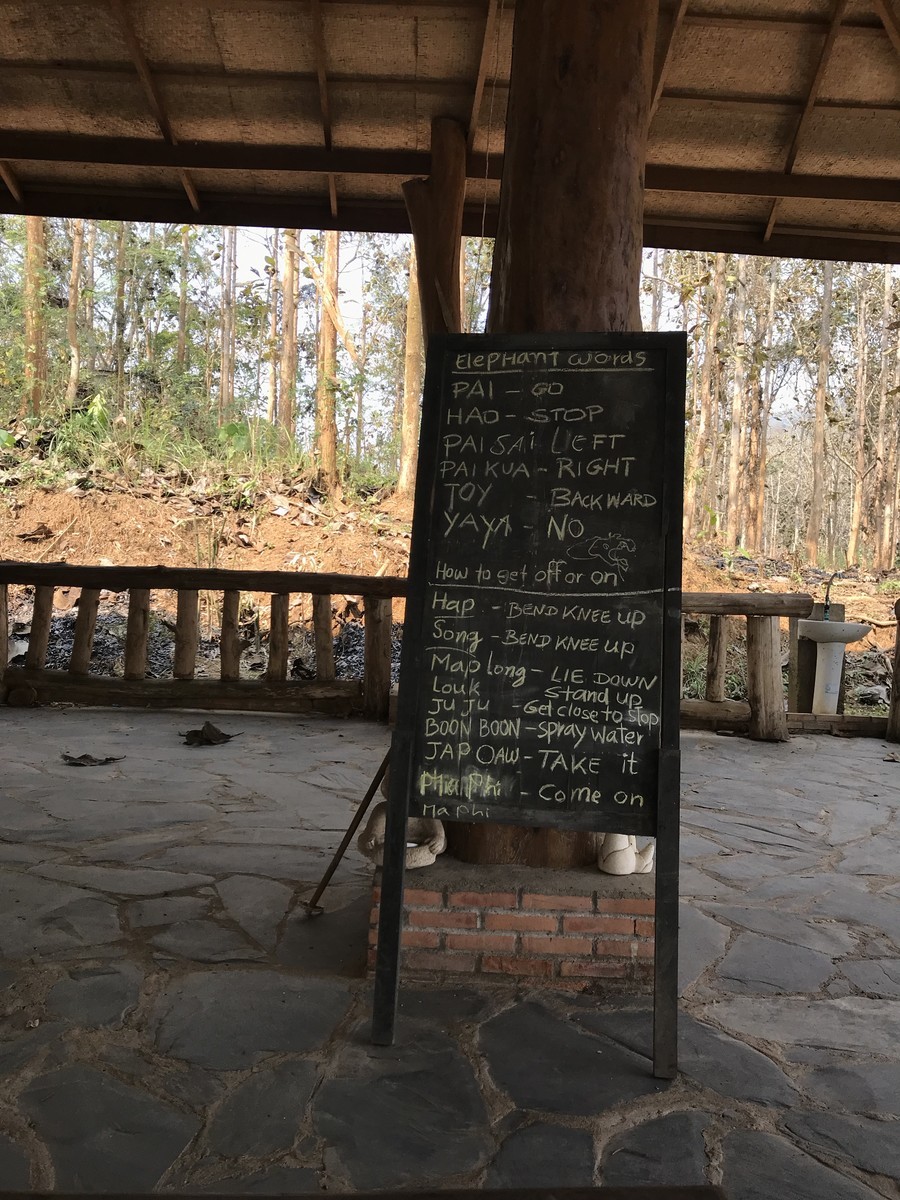 ElEPHANT WORDS
PAI - GO
HAO - STOP
PAI SAi LEFT
PAI KUA - RIGHT
TOY - BACKWARD
YAYA - NO
How to get off or on
Hap - BEND KNEE UP
Song - BEND KNEE UP
Map long - LIE DOWN
Louk Stand up
JU JU - Get close to stop
BOON BOON - spray water
JAP OAW - TAKE it
Pha Phi - Come on
Ma phi